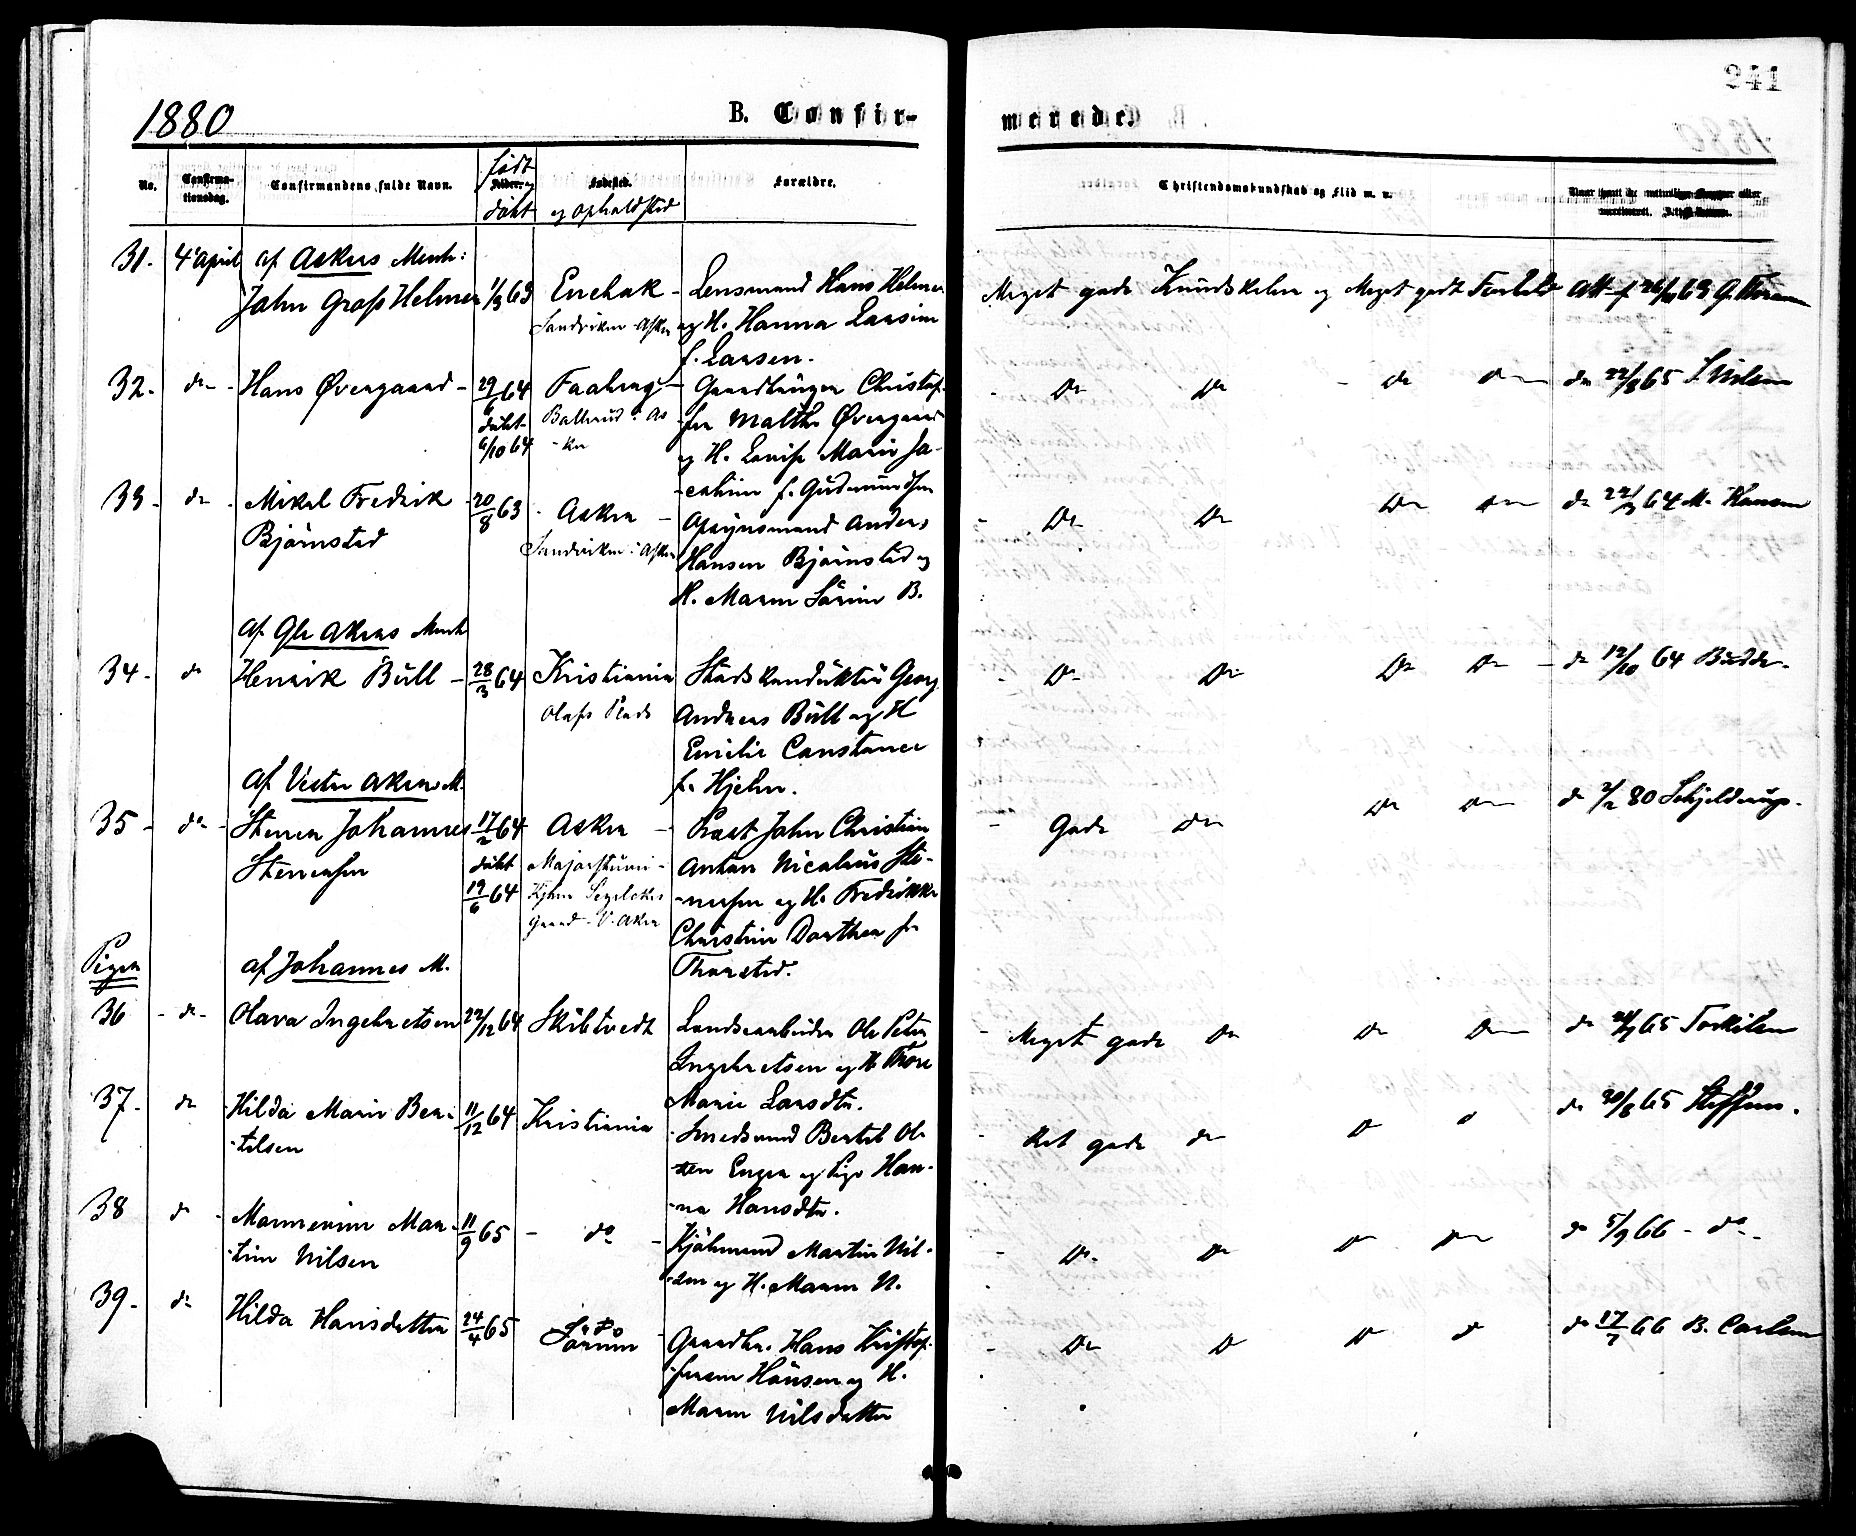 241
1880
B. Confir-
merede.
No.
Confirma-
tionsdag.
Confirmandens fulde Navn.
født
og
døbt
Fødested.
og opholdssted
Forældre.
Christendomskundskab og Flid m. v.
31. 4 april af Askers Menh:
John Gross Helmer 1/3 63 Enebak - Lensmand Hans Helmer
Sandviken Asker og H. Hanna Larsine
f. Larsen.
Meget gode Kundskaber og Meget godt Forhold
32. do - Hans Øvergaard - 29/6 64
døbt
6/10 64
Baerud i As-
ker
Gaardbruger Christof-
fer Malthe Øvergaard
og H. Louise Marie Ja-
cobine f. Gudmundsen
Do do - do do do 22/8 65
33. do - Mikal Fredrik
Bjørnsted
20/8 63 Asker
Sandviken i Asker
Opsynsmand Anders
Hansen Bjørnsted og
H. Maren Sørine B.
Do Do Do do do 64 M. Hansen
af Gle Akers Menh
34. do Henrik Bull - 28/3 64 Kristiania
Olafs Plads
Stadskonduktør Georg
Andreas Bull og H
Emilie Constance
f. Hjelm.
Do Do Do Do do 12/10 64 Budde.
af Vestre Akers M.
35 - do - Stener Johannes
Stenersen
17/2 64
døbt
19/6 64
Asker
Majorstuen
gaard V. Aker
Prest John Christian
Anton Nicolaus Ste-
nersen og H. Fredrikke
Christine Dorthea f.
Thorsted.
Gode do Do do do 2/2 80 Schjelderup.
Piger
af Johannes M.
36 - do - Olava Ingebretsen 22/12 64 Skibtvedt
Landsarbeider Ole Peter
Ingebretsen og H Thore
Marie Larsdtr.
Meget gode do do do do 65 Torkilsen
37. do Hilda Marie Ber-
tilsen
11/12 64 Kristiania
Smedsvend Bertel Ol-
sen Enger og Pige Han-
na Hansdtr.
Ret gode do do do do 20/8 65 Steffens.
38 do - Marmerine Mar-
tine Nilsen
11/9 65 - do -
Martin Nil-
sen og H. Maren N.
Do. Do do do do 5/9 66 - do -
39. do Hilda Hansdatter 24/4 65
Sørum
Gaardbr. Hans Kristof-
fersen Hansen og H.
Maren Nilsdatter
Do do do do do 17/7 66 B. Carlsen